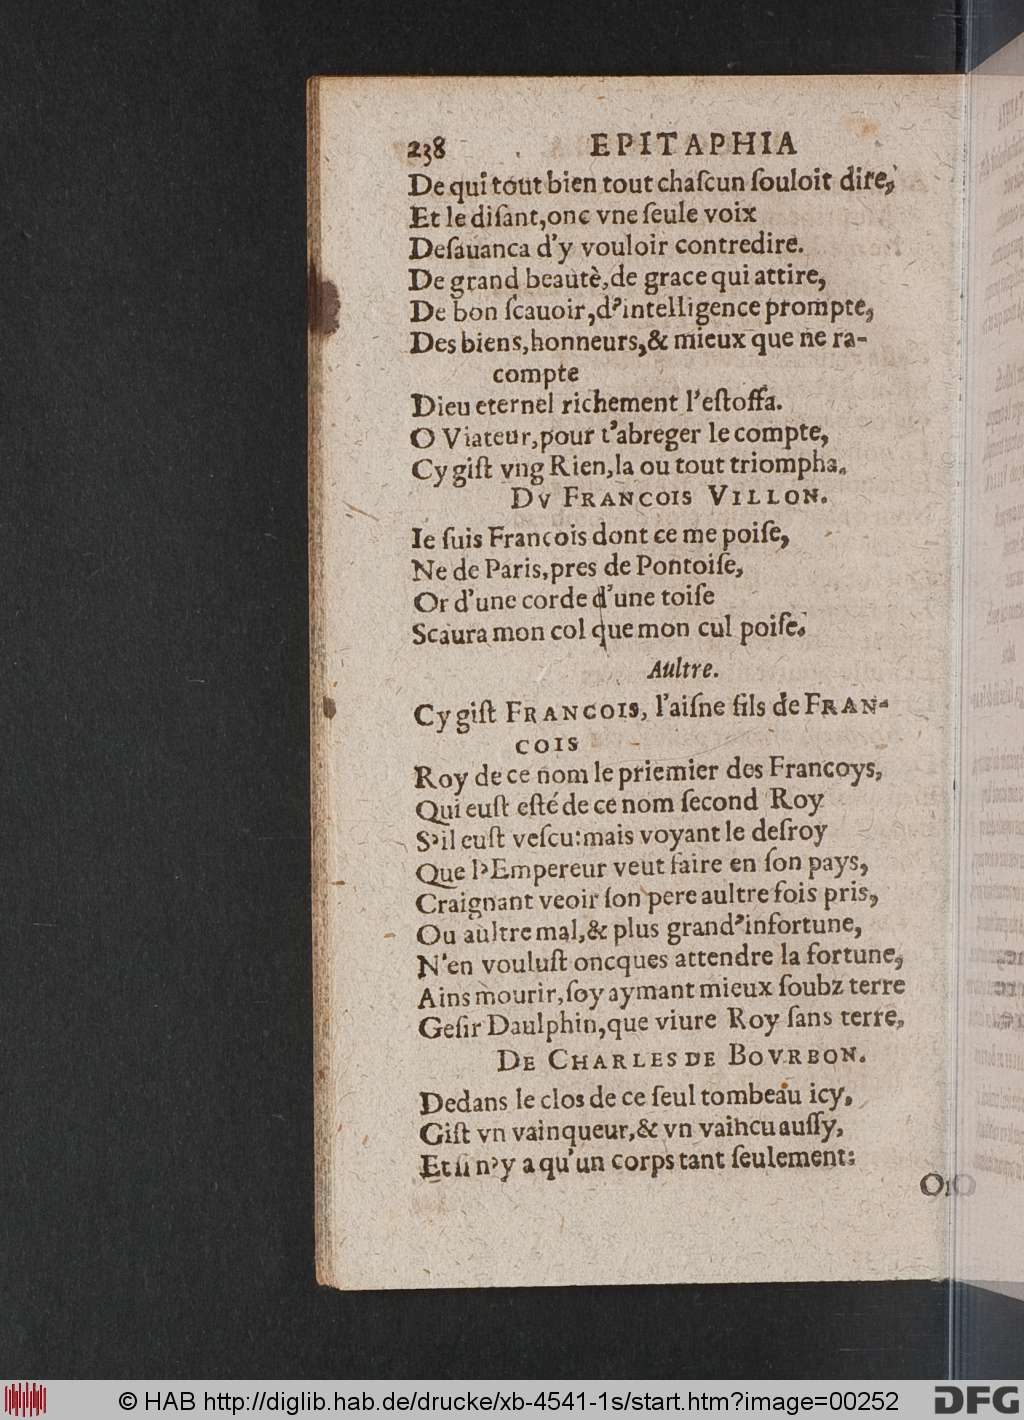 238 EPITAPHIA
De qui tout bien tout chaſcun ſouloit dire,
Et le diſant, onc vne ſeule voix
Deſauanca d'y vouloir contredire.
De grand beautè, de grace qui attire,
De bon ſcauoir, d'intelligence prompte,
Des biens, honneurs, & mieux que ne ra-
compte
Dieu eternel richement l'eſtoffa.
O Viateur, pour t'abreger le compte,
Cy giſt vng Rien, la ou tout triompha.
DV FRANCOIS VILLON.
Ie ſuis Francois dont ce me poiſe,
Ne de Paris, pres de Pontoiſe,
Or d'une corde d'une toiſe
Scaura mon col que mon cul poiſe.
Aultre.
Cy giſt FRANCOIS, l'aiſne fils de FRAN-
COIS
Roy de ce nom le priemier des Francoys,
Qui euſt eſté de ce nom ſecond Roy
S'il euſt veſcu: mais voyant le deſroy
Que l'Empereur veut faire en ſon pays,
Craignant veoir ſon pere aultre fois pris,
Ou aultre mal, & plus grand' infortune,
N'en vouluſt oncques attendre la fortune,
Ains mourir, ſoy aymant mieux ſoubz terre
Geſir Daulphin, que viure Roy ſans terre,
DE CHARLES DE BOVRBON.
Dedans le clos de ce ſeul tombeau icy,
Giſt vn vainqueur, & vn vaincu auſſy,
Et ſi n'y a qu'un corps tant ſeulement:
© HAB http://diglib.hab.de/drucke/xb-4541-1s/start.htm?image=00252
DFG